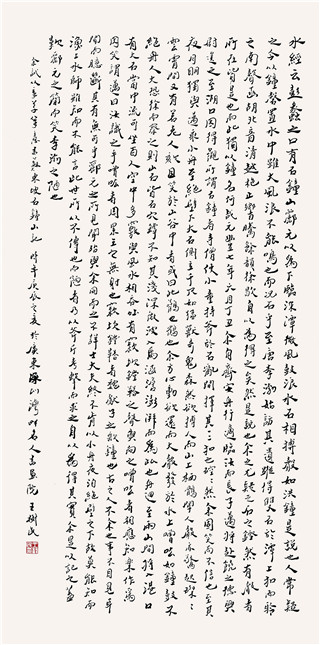 水經云彭蠡之口有石鐘山酈元以為下臨深潭微風鼓浪水石相搏聲如洪鐘是說也人常疑
之今以鐘磬置水中雖大風浪不能鳴也而況石乎至唐李渤始訪其遺蹤得雙石於潭上扣而聆
之南聲函胡北音清越枹止響騰餘韻徐歇自以為得之矣然是說也余尤疑之石之鏗然有聲者
所在皆是也而此獨以鐘名何哉元豐七年六月丁丑余自齊安舟行適臨汝而長子邁將赴饒之德興
尉送之至湖口因得觀所謂石鐘者寺僧使小童持斧於亂石間擇其一二扣之硿硿然余固笑而不信也至其
夜月明獨與邁乘小舟至絕壁下大石側立千尺如猛獸奇鬼森然欲搏人而山上棲鶻聞人聲亦驚起磔磔
雲霄間又有若老人欬且笑於山谷中者或曰此鸛鶴也余方心動欲還而大聲發於水上噌吰如鐘鼓不
絕舟人大恐徐而察之則山下皆石穴罅不知其淺深微波入焉涵澹澎湃而為此也舟迴至兩山間將入港口
有大石當中流可坐百人空中而多竅與風水相吞吐有窾坎鏜鞳之聲與向之噌吰者相應如樂作焉
因笑謂邁曰汝識之乎噌吰者周景王之無射也窾坎鏜鞳者魏莊子之歌鐘也古之人不余欺也事不目見耳
聞而臆斷其有無可乎酈元之所見聞殆與余同而言之不詳士大夫終不肯以小舟夜泊絕壁之下故莫能知而
漁工水師雖知而不能言此世所以不傳也而陋者乃以斧斤考擊而求之自以為得其實余是以記之蓋
歎酈元之簡而笑李渤之陋也
蘇東坡石鐘山記 於廣東 名人書畫院 王樹民